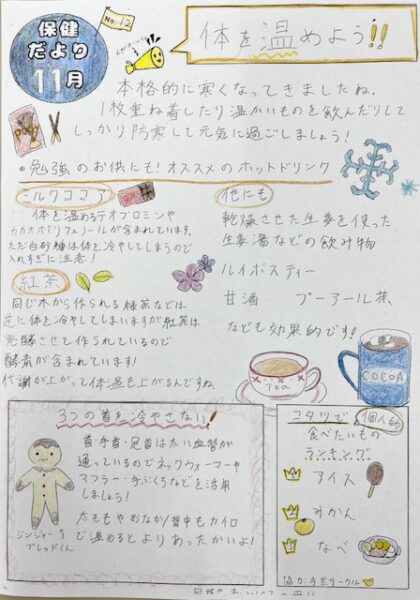 No.12
保健
だより
11月
体を温めよう!!
本格的に寒くなってきましたね。
1枚重ね着したり温かいものを飲んだりして
しっかり防寒して元気に過ごしましょう!
勉強のお供にも!オススメのホットドリンク
ミルクココア
体を温めるテオブロミンや
カカオポリフェノールが含まれています。
ただ白砂糖は体を冷やしてしまうので
入れすぎに注意!
紅茶
同じ木から作られる緑茶などは
逆に体を冷やしてしまいますが紅茶は
発酵させて作られているので
酵素が含まれています!
代謝が上がって体温も上がるんですね。
他にも
乾燥させた生姜を使った
生姜湯などの飲み物
ルイボスティー
甘酒 プーアール茶
なども効果的です!
Tea
COCOA
3つの首を冷やさない!
首・手首・足首は太い血管が
通っているのでネックウォーマーや
マフラー・手ぶくろなどを活用
しましょう!
太ももやおなか/背中もカイロ
で温めるとよりあったかいよ!
ジンジャー
ブレッドくん
コタツで 個人的
食べたいもの
ランキング
1 アイス
2 みかん
3 なべ
協力:手芸サークル